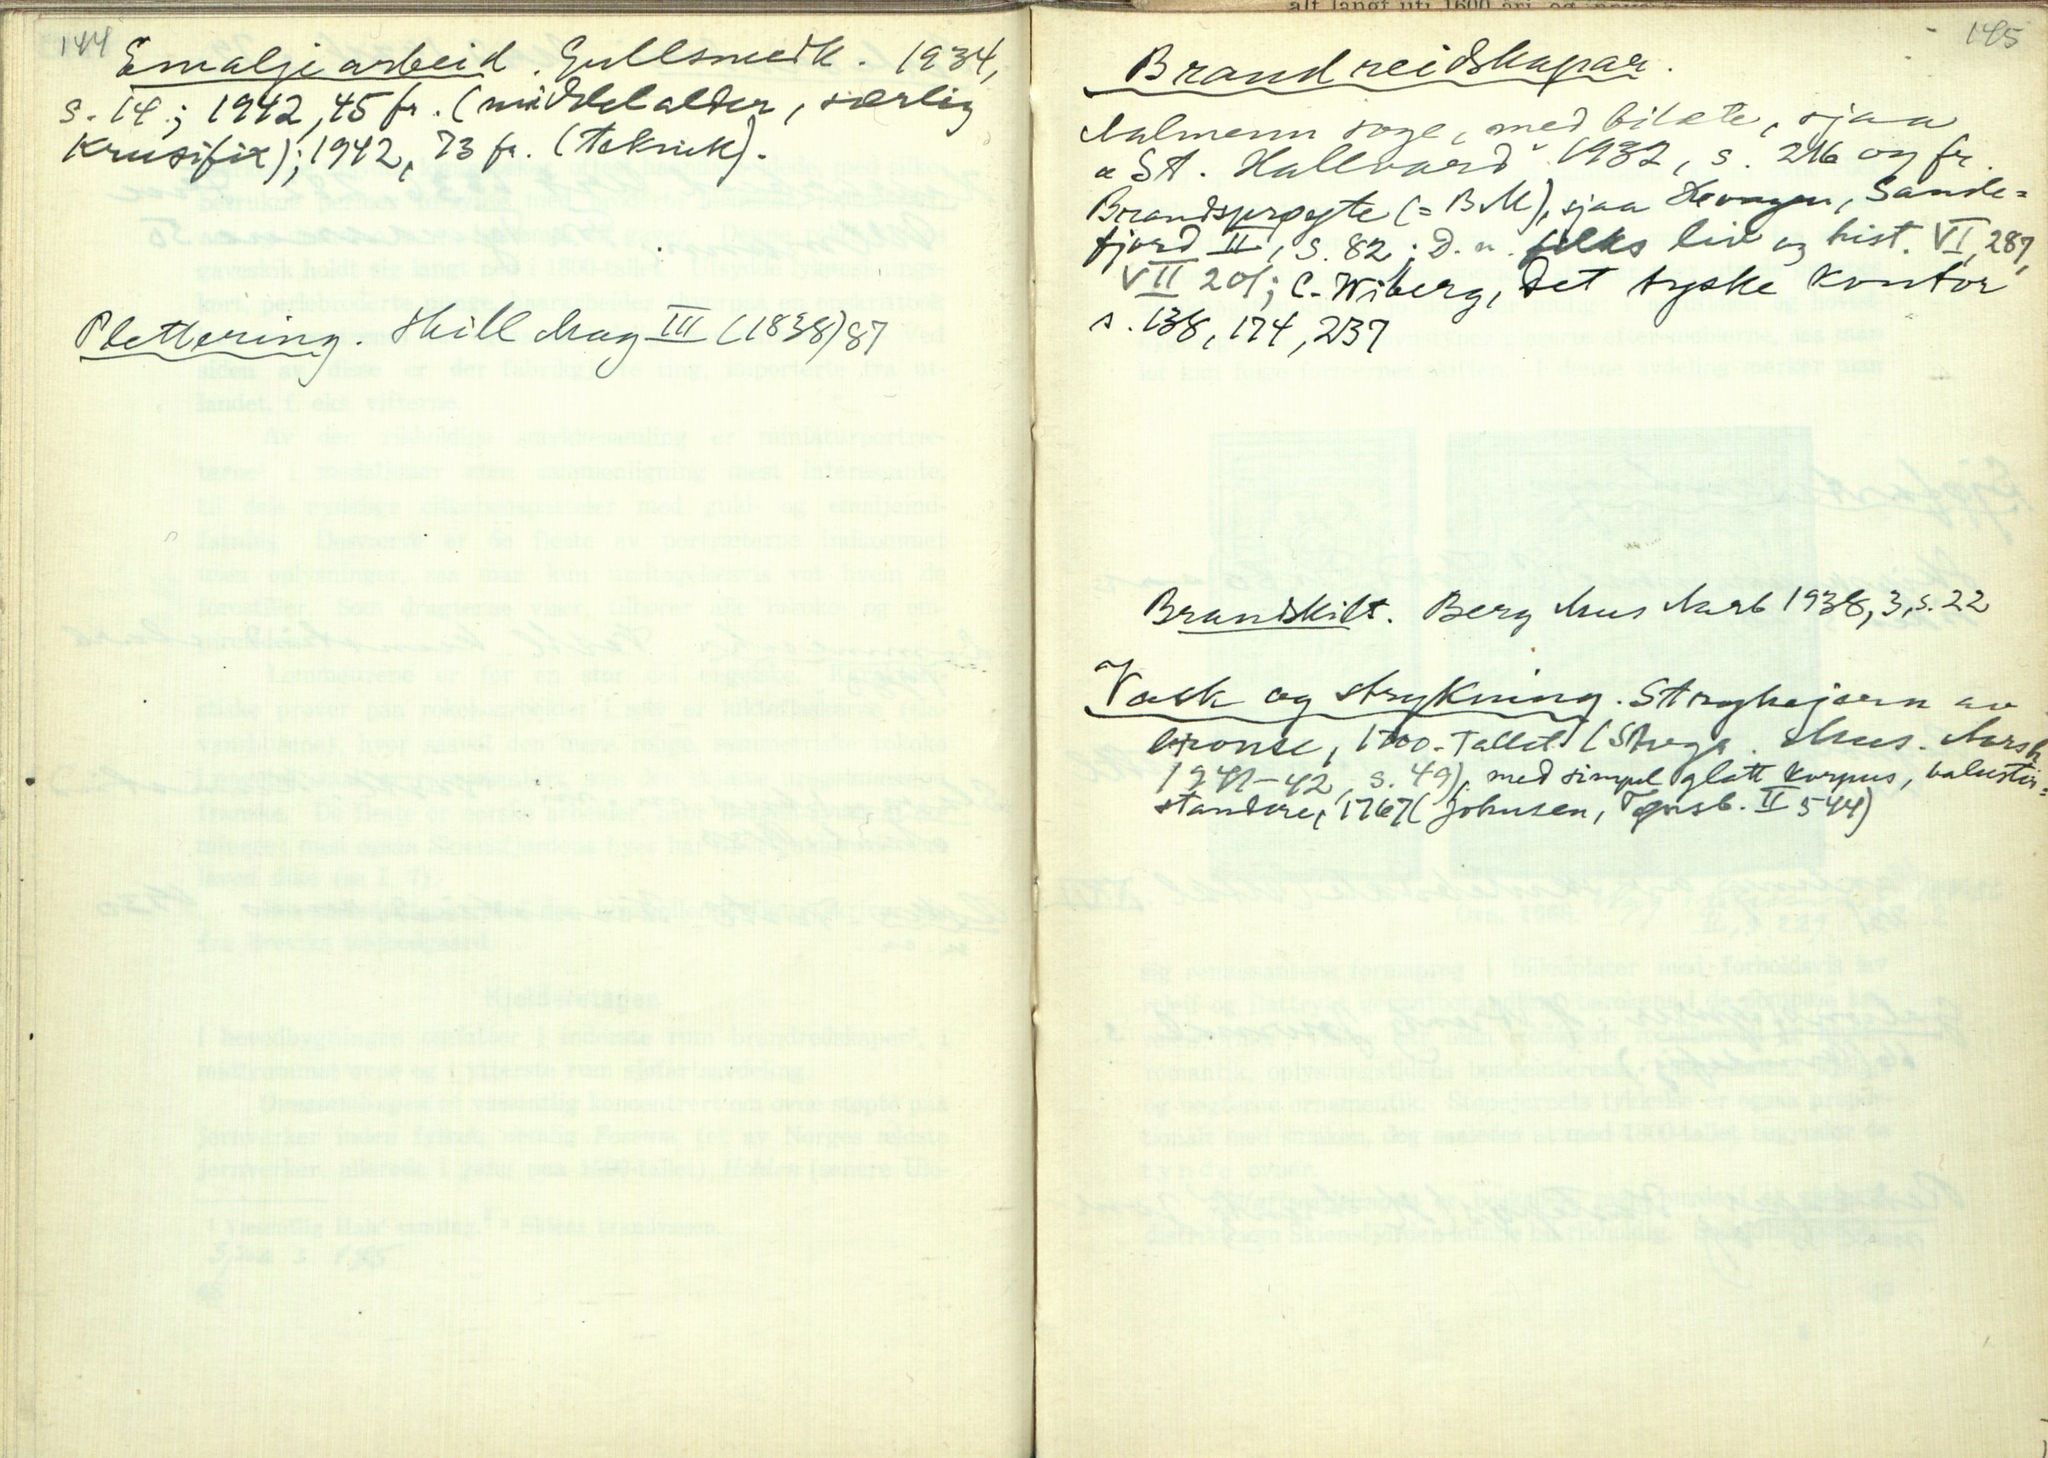 144
Emaljearbeid. Gullsmedk. 1934,
s. 14; 1942, 45 fr. (middelalder, særlig
krusifix); 1942, 73 fr. (teknik).
Plettering. Skill Mag III (1838) 87
145
Brandreidskapar.
Aalmenn soge, med bilæte, sjaa
"St. Hallvard" 1932, s. 216 og fr.
Brandsprøyte (= BM), sjaa Hougen, Sande=
fjord II, s. 82; D. n. folks liv og hist. VI, 287,
VII 201; C. Wiberg, Det tyske Kontor
s. 138, 174, 237
Brandskilt. Berg Mus Aarb 1938, 3, s. 22
Vask og strykning. Strykejern av
bronse, 1700-Tallet (Mus. Aarsb
1941-42, s. 49), med simpel glatt korpus, baluster=
standere, 1767 (Johnsen, Tønsb. II 544)